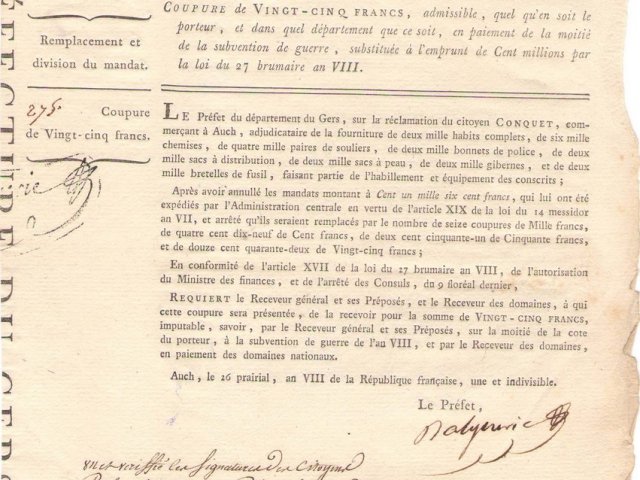 COUPURE de VINGT-CINQ FRANCS, admissible, quel qu'en soit le
porteur, et dans quel département que ce soit, en paiement de la moitié
de la subvention de guerre, substituée à l'emprunt de Cent millions par
la loi du 27 brumaire an VIII.
Remplacement et
division du mandat.
275. Coupure
de Vingt-cinq francs.
LE Préfet du département du Gers, sur la réclamation du citoyen CONQUET, com-
merçant à Auch, adjudicataire de la fourniture de deux mille habits complets, de six mille
chemises, de quatre mille paires de souliers, de deux mille bonnets de police, de deux
mille sacs à distribution, de deux mille sacs à peau, de deux mille gibernes, et de deux
mille bretelles de fusil, faisant partie de l'habillement et équipement des conscrits;
Après avoir annullé les mandats montant à Cent un mille six cent francs, qui lui ont été
expédiés par l'Administration centrale en vertu de l'article XIX de la loi du 14 messidor
an VII, et arrêté qu'ils seraient remplacés par le nombre de seize coupures de Mille francs,
de quatre cent dix-neuf de Cent francs, de deux cent cinquante-un de Cinquante francs,
et de douze cent quarante-deux de Vingt-cinq francs;
En conformité de l'article XVII de la loi du 27 brumaire an VIII, de l'autorisation
du Ministre des finances, et de l'arrêté des Consuls, du 9 floréal dernier,
REQUIERT le Receveur général et ses Préposés, et le Receveur des domaines, à qui
cette coupure sera présentée, de la recevoir pour la somme de VINGT-CINQ FRANCS,
imputable, savoir, par le Receveur général et ses Préposés, sur la moitié de la cote
du porteur, à la subvention de guerre de l'an VIII, et par le Receveur des domaines,
en paiement des domaines nationaux.
Auch, le 26 prairial, an VIII de la République française, une et indivisible.
Le Préfet,
Balguerie
les signatures des Citoyens